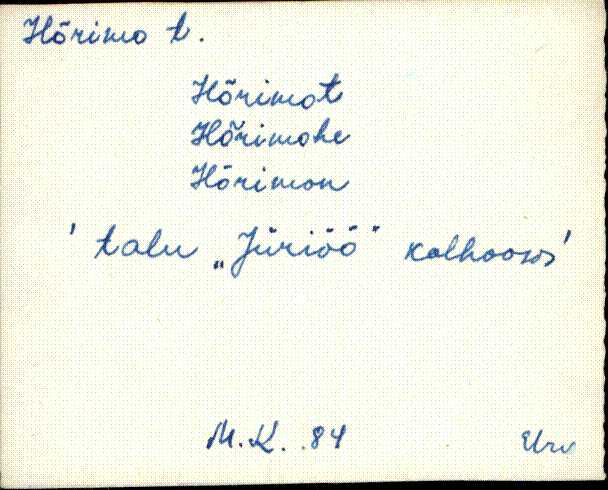 Hõrimo t.
Hõrimot
Hõrimohe
Hõrimon
' talu „Jüriöö" kolhoosis'
M.K. 84 Urv